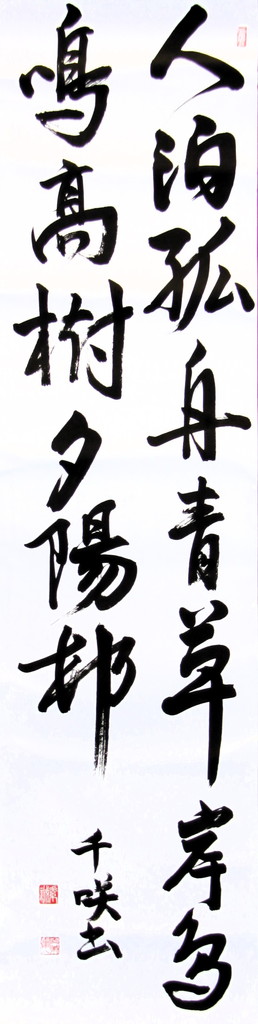 人泊孤舟青草岸鳥
鳴高樹夕陽邨
千咲書